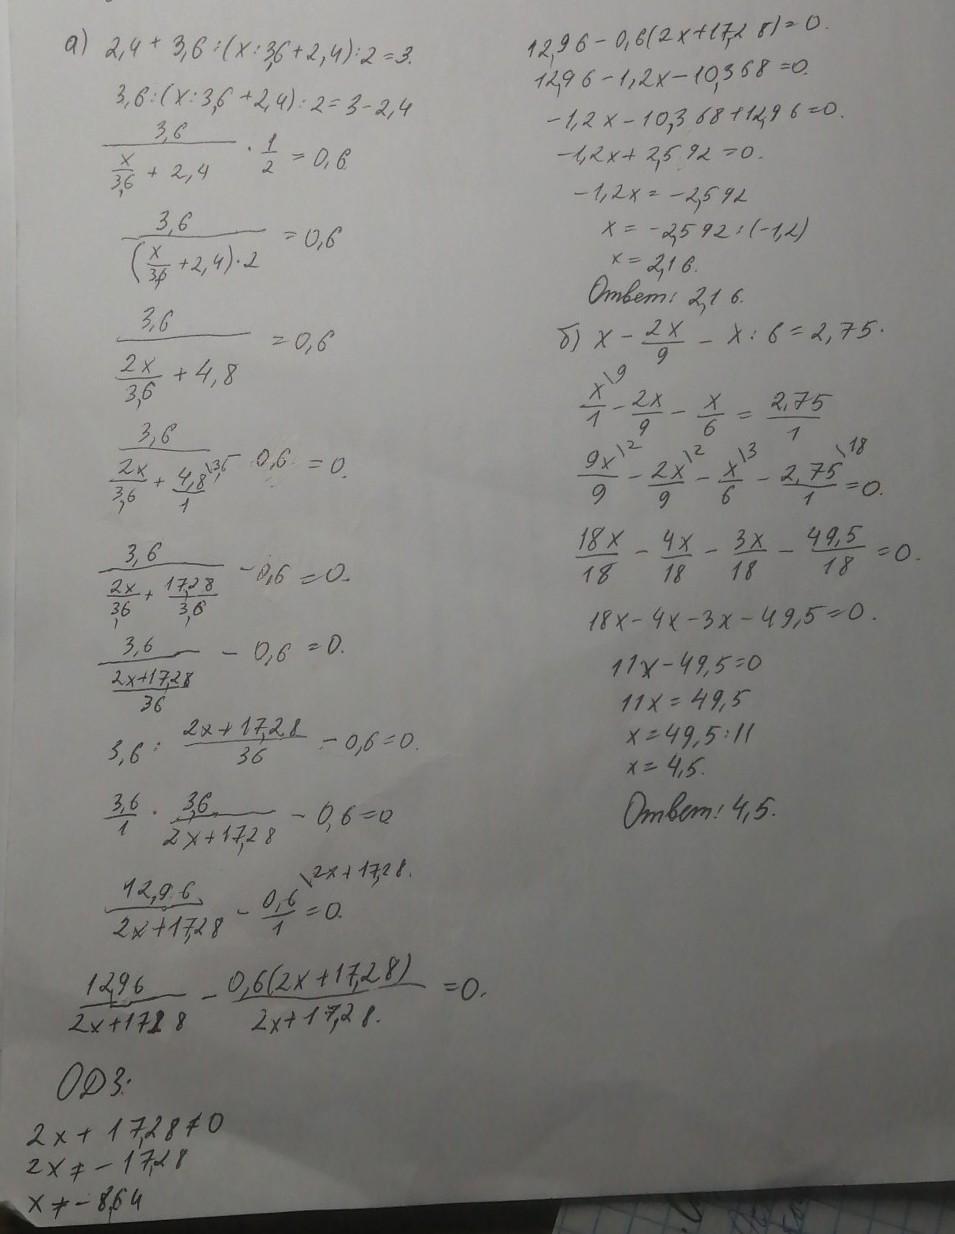 а) 2,4 + 3,6 : (x : 3,6 + 2,4) : 2 = 3.
3,6 : (x : 3,6 + 2,4) : 2 = 3 - 2,4
3,6 / (x/3,6 + 2,4) · 1/2 = 0,6
3,6 / ((x/3,6 + 2,4) · 2) = 0,6
3,6 / (2x/3,6 + 4,8) = 0,6
3,6 / (2x/3,6 + 4,8/1 \3,6) - 0,6 = 0.
3,6 / (2x/3,6 + 17,28/3,6) - 0,6 = 0.
3,6 / ((2x+17,28)/36) - 0,6 = 0.
3,6 : (2x+17,28)/36 - 0,6 = 0.
3,6/1 · 3,6/(2x+17,28) - 0,6 = 0
12,96/(2x+17,28) - 0,6/1 \2x+17,28. = 0.
12,96/(2x+17,28) - 0,6(2x+17,28)/(2x+17,28.) = 0.
ОДЗ:
2x + 17,28 ≠ 0
2x ≠ - 17,28
x ≠ - 8,64
12,96 - 0,6(2x+17,28) = 0.
12,96 - 1,2x - 10,368 = 0.
-1,2x - 10,368 + 12,96 = 0.
-1,2x + 2,592 = 0.
-1,2x = -2,592
x = -2,592 : (-1,2)
x = 2,16.
Ответ: 2,16.
б) x - 2x/9 - x : 6 = 2,75.
x/1 \9 - 2x/9 - x/6 = 2,75/1
9x/9 \2 - 2x/9 \2 - x/6 \3 - 2,75/1 \18 = 0.
18x/18 - 4x/18 - 3x/18 - 49,5/18 = 0.
18x - 4x - 3x - 49,5 = 0.
11x - 49,5 = 0
11x = 49,5
x = 49,5 : 11
x = 4,5.
Ответ: 4,5.